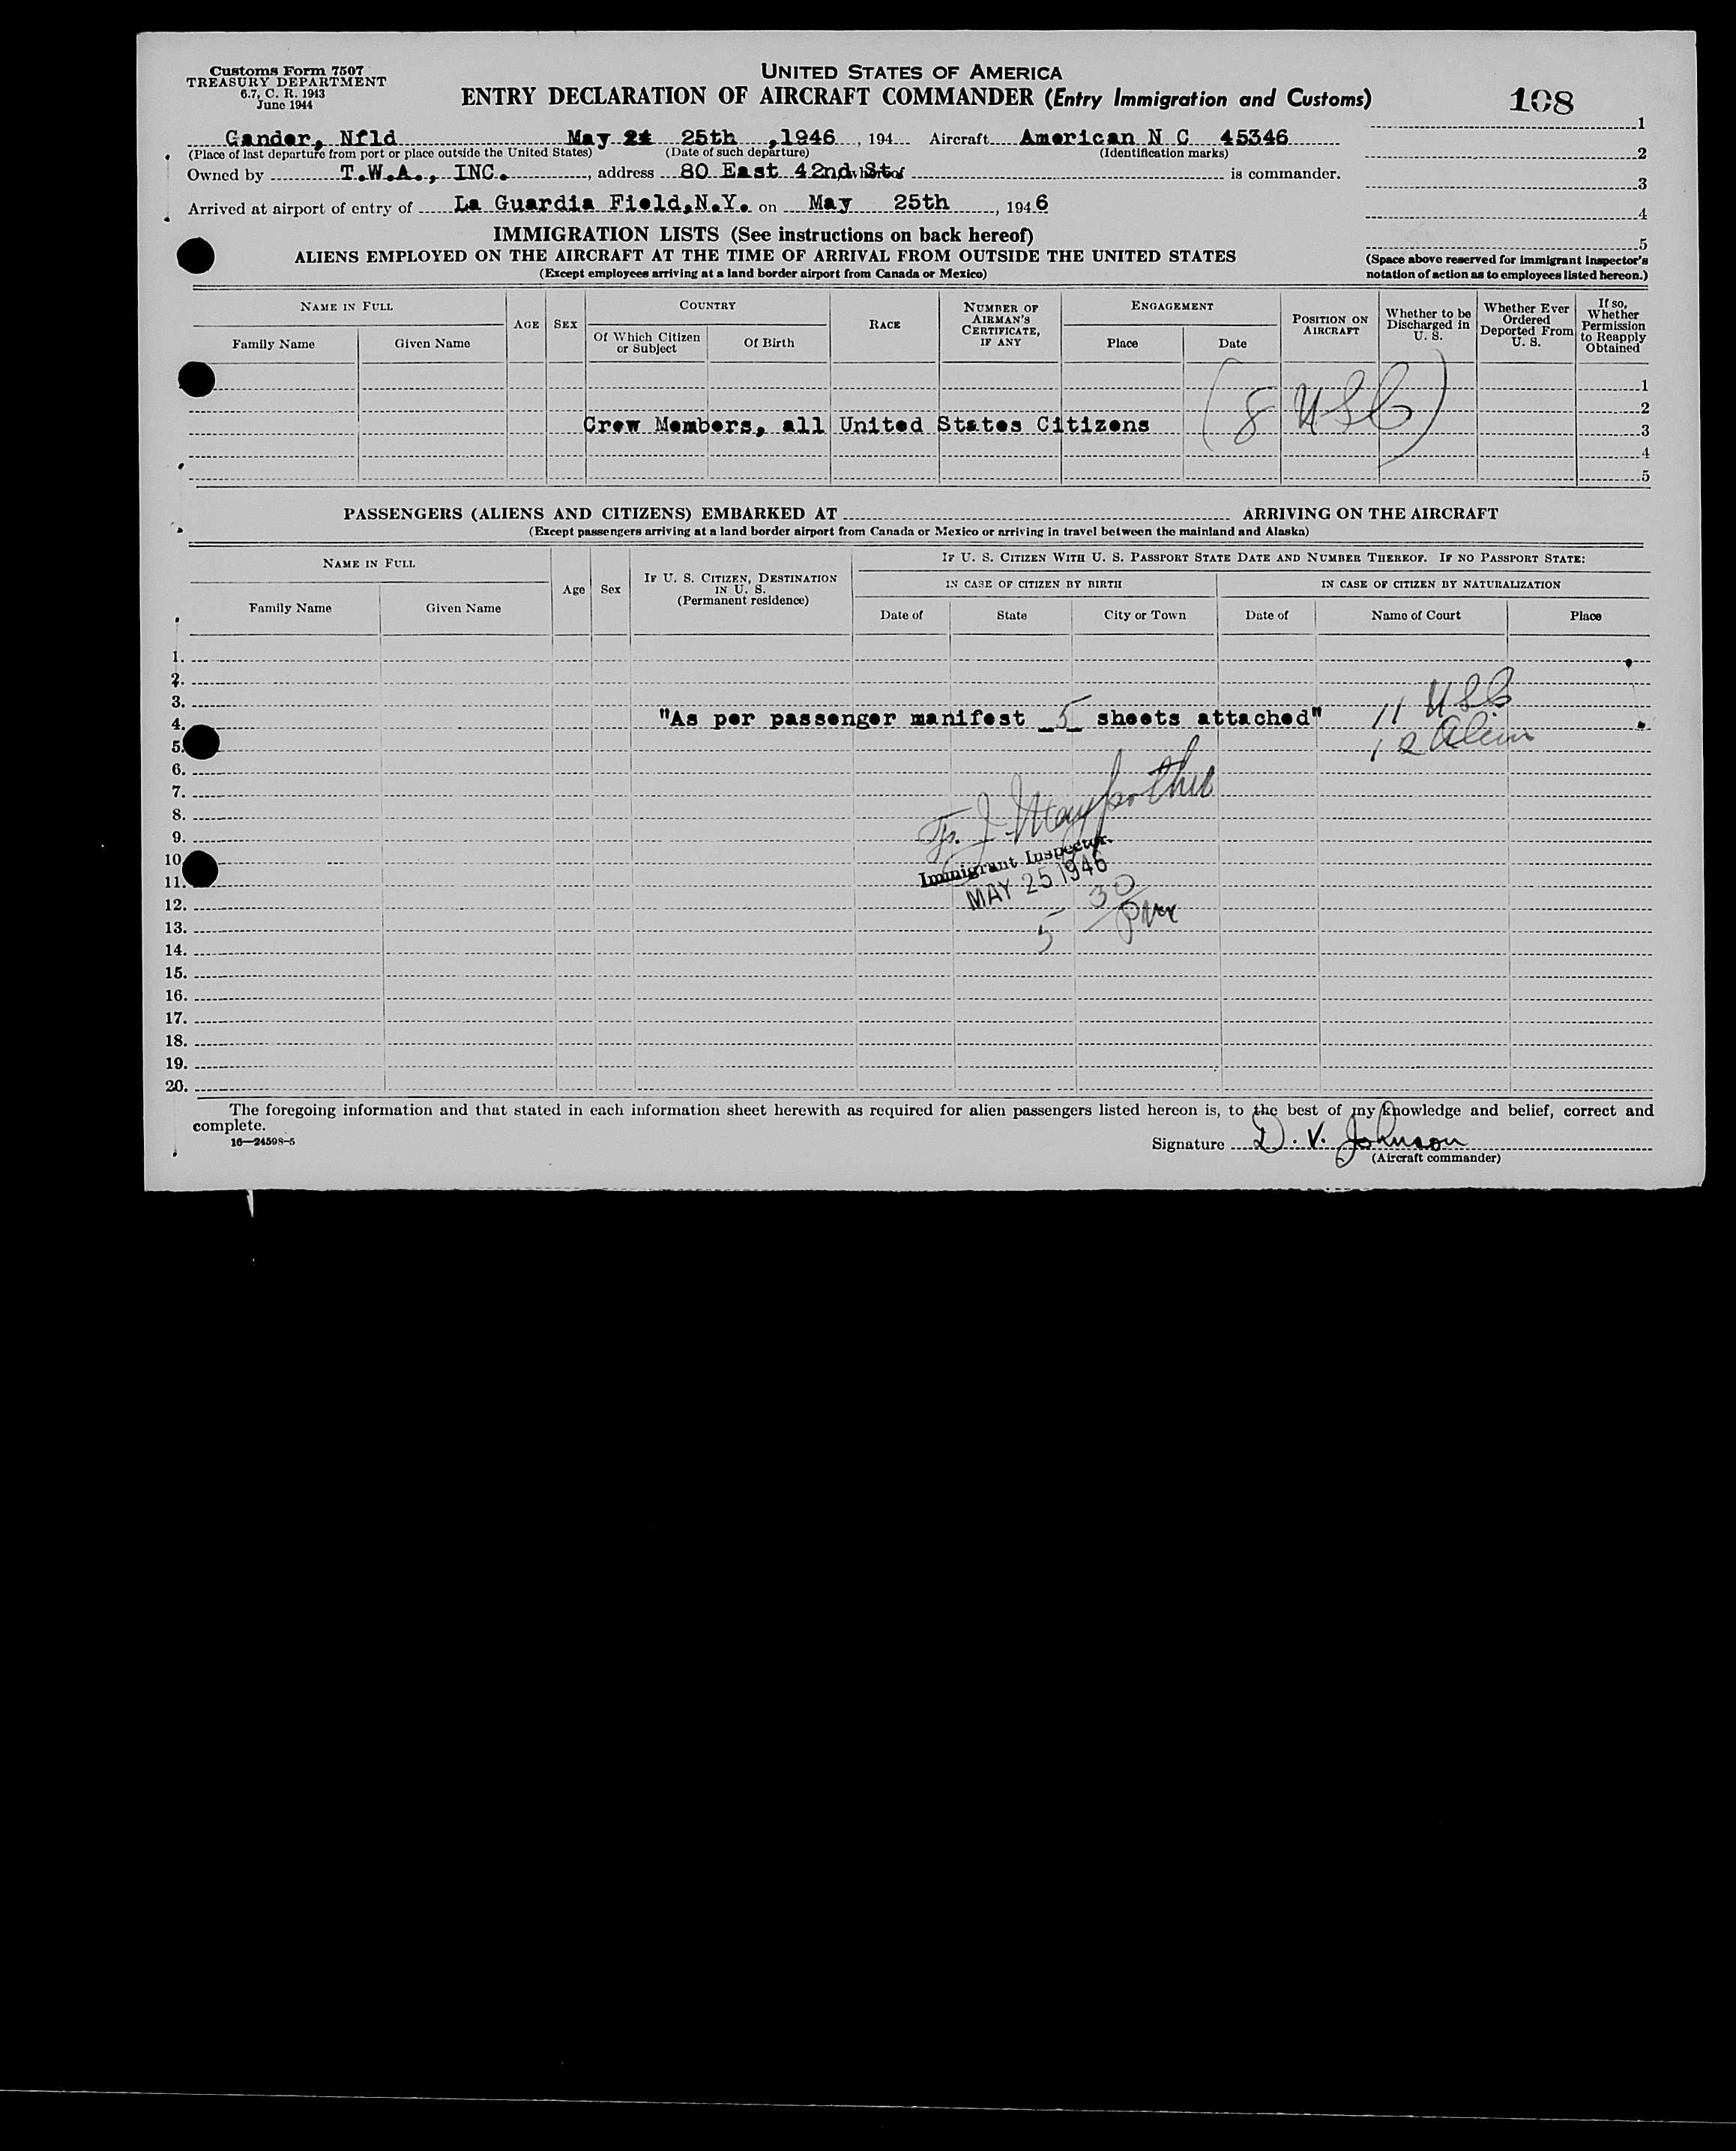 Customs Form 7507
TREASURY DEPARTMENT
6.7, C. R. 1943
June 1944
UNITED STATES OF AMERICA
ENTRY DECLARATION OF AIRCRAFT COMMANDER (Entry Immigration and Customs)
108
Gander, Nfld May 24 25th ,1946 , 194 Aircraft American N C 45346
(Place of last departure from port or place outside the United States) (Date of such departure) (Identification marks)
Owned by T.W.A., INC. , address 80 East 42nd St. is commander.
Arrived at airport of entry of La Guardia Field, N.Y. on May 25th , 1946
1
2
3
4
5
(Space above reserved for immigrant inspector's
notation of action as to employees listed hereon.)
IMMIGRATION LISTS (See instructions on back hereof)
ALIENS EMPLOYED ON THE AIRCRAFT AT THE TIME OF ARRIVAL FROM OUTSIDE THE UNITED STATES
(Except employees arriving at a land border airport from Canada or Mexico)
NAME IN FULL
Family Name Given Name
AGE SEX
COUNTRY
Of Which Citizen or Subject
Of Birth
RACE
NUMBER OF AIRMAN'S CERTIFICATE, IF ANY
ENGAGEMENT
Place Date
POSITION ON AIRCRAFT
Whether to be Discharged in U. S.
Whether Ever Ordered Deported From U. S.
If so, Whether Permission to Reapply Obtained
1
2
Crew Members, all United States Citizens (8 USC)
3
4
5
PASSENGERS (ALIENS AND CITIZENS) EMBARKED AT ARRIVING ON THE AIRCRAFT
(Except passengers arriving at a land border airport from Canada or Mexico or arriving in travel between the mainland and Alaska)
NAME IN FULL
Family Name Given Name
Age Sex
IF U. S. CITIZEN, DESTINATION IN U. S.
(Permanent residence)
IF U. S. CITIZEN WITH U. S. PASSPORT STATE DATE AND NUMBER THEREOF. IF NO PASSPORT STATE:
IN CASE OF CITIZEN BY BIRTH IN CASE OF CITIZEN BY NATURALIZATION
Date of State City or Town Date of Name of Court Place
1.
2.
3.
4. "As per passenger manifest 5 sheets attached" 11 USC
5. 12 Alien
6.
7.
8.
9.
10.
Immigrant Inspector.
11.
MAY 25 1946
12.
5 30 PM
13.
14.
15.
16.
17.
18.
19.
20.
The foregoing information and that stated in each information sheet herewith as required for alien passengers listed hereon is, to the best of my knowledge and belief, correct and
complete.
16—24598-5
Signature D. V. Johnson
(Aircraft commander)